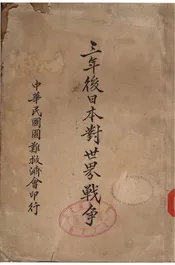 三年後日本對世界戰争
中華民國國難救濟會印行